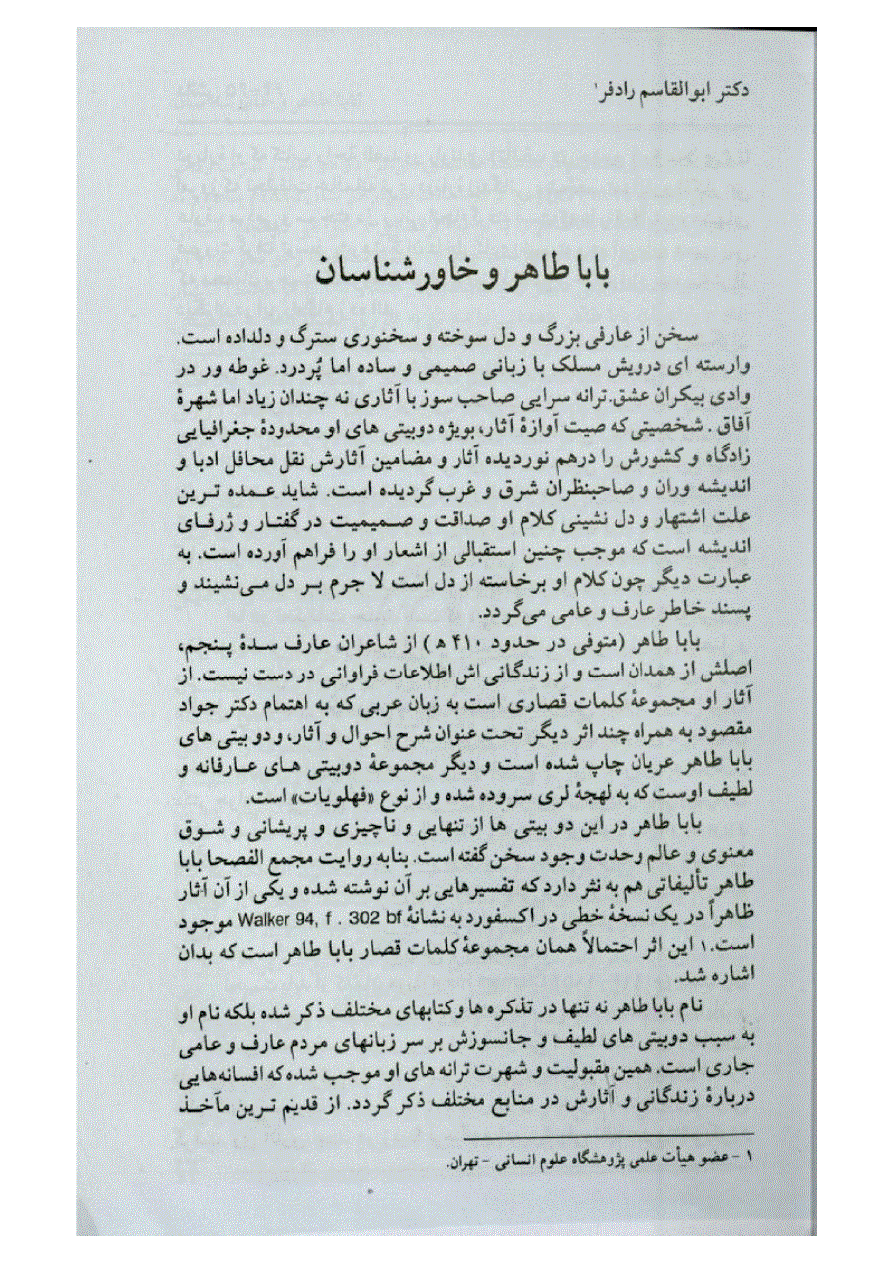 دکتر ابوالقاسم رادفر۱
بابا طاهر و خاورشناسان
سخن از عارفی بزرگ و دل سوخته و سخنوری سترگ و دلداده است.
وارسته ای درویش مسلک با زبانی صمیمی و ساده اما پُردرد. غوطه ور در
وادی بیکران عشق.ترانه سرایی صاحب سوز با آثاری نه چندان زیاد اما شهرۀ
آفاق . شخصیتی که صیت آوازۀ آثار، بویژه دوبیتی های او محدودۀ جغرافیایی
زادگاه و کشورش را درهم نوردیده آثار و مضامین آثارش نقل محافل ادبا و
اندیشه وران و صاحبنظران شرق و غرب گردیده است. شاید عمده ترین
علت اشتهار و دل نشینی کلام او صداقت و صمیمیت در گفتار و ژرفای
اندیشه است که موجب چنین استقبالی از اشعار او را فراهم آورده است. به
عبارت دیگر چون کلام او برخاسته از دل است لا جرم بر دل می‌نشیند و
پسند خاطر عارف و عامی می‌گردد.
بابا طاهر (متوفی در حدود ۴۱۰ ه) از شاعران عارف سدۀ پنجم،
اصلش از همدان است و از زندگانی اش اطلاعات فراوانی در دست نیست. از
آثار او مجموعۀ کلمات قصاری است به زبان عربی که به اهتمام دکتر جواد
مقصود به همراه چند اثر دیگر تحت عنوان شرح احوال و آثار، و دو بیتی های
بابا طاهر عریان چاپ شده است و دیگر مجموعۀ دوبیتی های عارفانه و
لطیف اوست که به لهجۀ لری سروده شده و از نوع «فهلویات» است.
بابا طاهر در این دو بیتی ها از تنهایی و ناچیزی و پریشانی و شوق
معنوی و عالم وحدت وجود سخن گفته است. بنابه روایت مجمع الفصحا بابا
طاهر تألیفاتی هم به نثر دارد که تفسیرهایی بر آن نوشته شده و یکی از آن آثار
ظاهراً در یک نسخۀ خطی در اکسفورد به نشانۀ Walker 94, f . 302 bf موجود
است.۱ این اثر احتمالاً همان مجموعۀ کلمات قصار بابا طاهر است که بدان
اشاره شد.
نام بابا طاهر نه تنها در تذکره ها و کتابهای مختلف ذکر شده بلکه نام او
به سبب دوبیتی های لطیف و جانسوزش بر سر زبانهای مردم عارف و عامی
جاری است. همین مقبولیت و شهرت ترانه های او موجب شده که افسانه‌هایی
دربارۀ زندگانی و آثارش در منابع مختلف ذکر گردد. از قدیم ترین مآخذ
۱ - عضو هیأت علمی پژوهشگاه علوم انسانی - تهران.